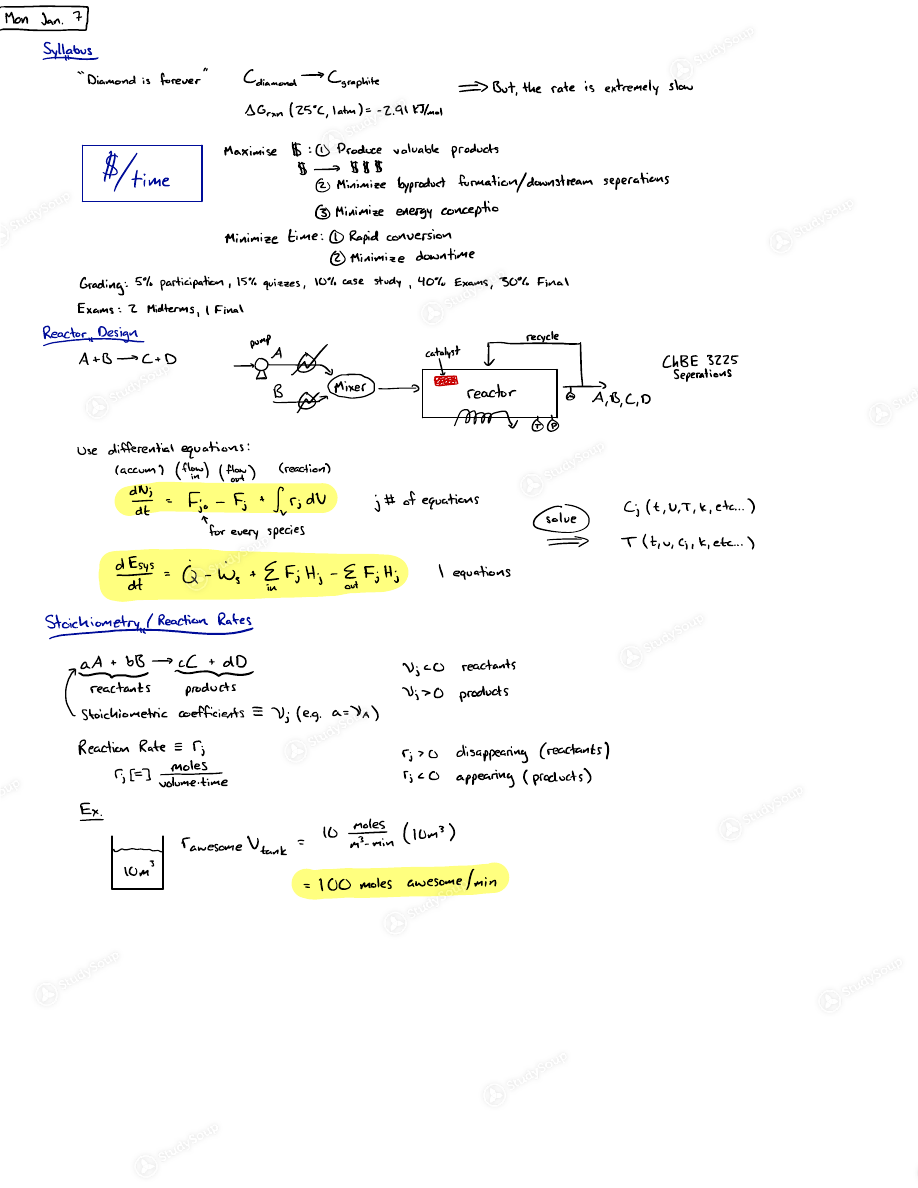 Mon Jan. 7
Syllabus
"Diamond is forever" C diamond → C graphite
⟹ But, the rate is extremely slow
ΔGrxn (25°C, 1atm) = -2.91 kJ/mol
$/time
Maximise $ : ① Produce valuable products
$ → $$$
② Minimize byproduct formation/downstream seperations
③ Minimize energy conceptio
Minimize time: ① Rapid conversion
② Minimize downtime
Grading: 5% participation, 15% quizzes, 10% case study, 40% Exams, 30% Final
Exams: 2 Midterms, 1 Final
Reactor Design
A+B → C+D
pump
A
B
Mixer
catalyst
reactor
recycle
T
P
A, B, C, D
ChBE 3225
Seperations
Use differential equations:
(accum) (flow in) (flow out) (reaction)
dNj/dt = Fjo - Fj + ∫v rj dV j # of equations
for every species
solve ⟹
Cj (t, υ, T, k, etc...)
T (t, υ, Cj, k, etc...)
dEsys/dt = Q̇ - Ẇs + Σin Fj Hj - Σout Fj Hj 1 equations
Stoichiometry / Reaction Rates
aA + bB → cC + dD
reactants products
νj < 0 reactants
νj > 0 products
Stoichiometric coefficients ≡ νj (e.g. a = νA)
Reaction Rate ≡ rj
rj [=] moles/volume·time
rj > 0 disappearing (reactants)
rj < 0 appearing (products)
Ex.
10m³
r awesome V tank = 10 moles/m³-min (10m³)
= 100 moles awesome/min
StudySoup